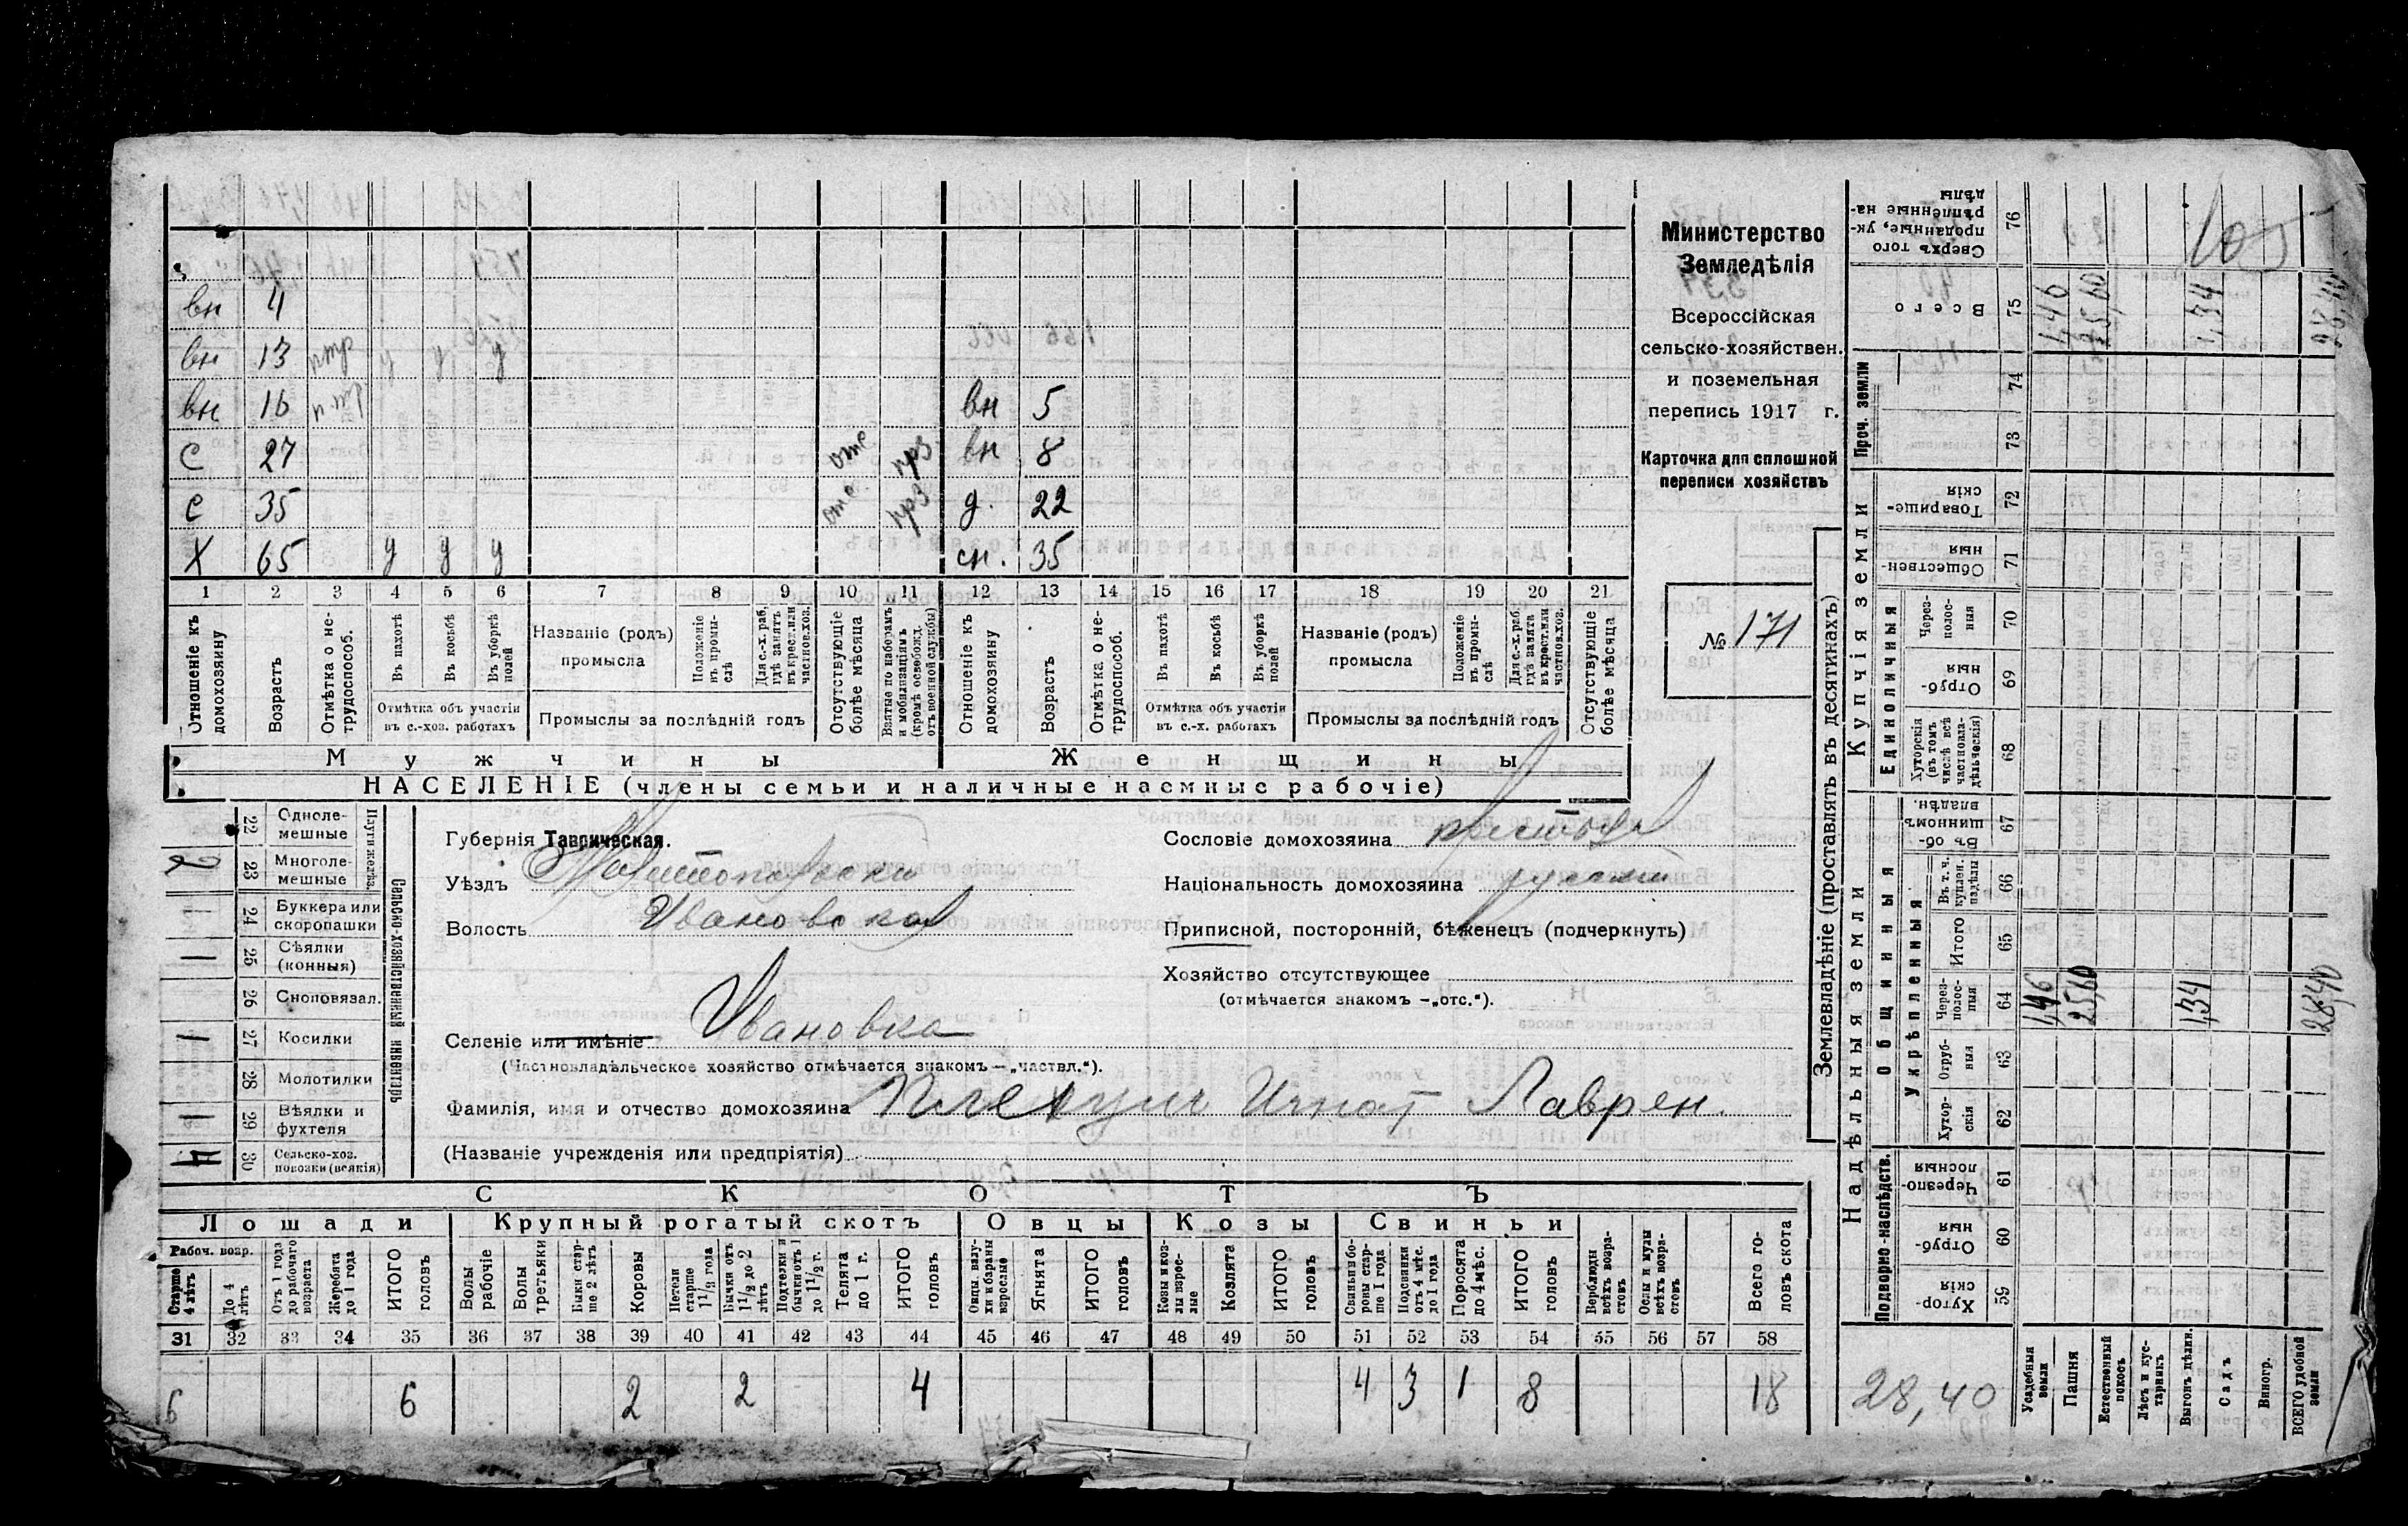 Министерство
Земледѣлія
Всероссійская
сельско-хозяйствен.
и поземельная
перепись 1917 г.
Карточка для сплошной
переписи хозяйствъ
№ 171
вн 4
вн 13
вн 16 вн 5
с 27 отс прз вн 8
с 35 отс. прз д. 22
Х 65 у у у сн. 35
1 2 3 4 5 6 7 8 9 10 11 12 13 14 15 16 17 18 19 20 21
Отношеніе къ домохозяину
Возрастъ
Отмѣтка о нетрудоспособ.
Въ пахотѣ
Въ косьбѣ
Въ уборкѣ полей
Отмѣтка объ участіи въ с.-хоз. работахъ
Названіе (родъ) промысла
Положеніе въ промыслѣ
Для с.-х. раб, гдѣ занятъ въ крест. или частнов. хоз.
Промыслы за послѣдній годъ
Отсутствующіе болѣе мѣсяца
Взятые по наборамъ и мобилизаціямъ (кромѣ освобожд. отъ военной службы)
Отношеніе къ домохозяину
Возрастъ
Отмѣтка о нетрудоспособ.
Въ пахотѣ
Въ косьбѣ
Въ уборкѣ полей
Отмѣтка объ участіи въ с.-х. работахъ
Названіе (родъ) промысла
Положеніе въ промыслѣ
Для с.-х. раб. гдѣ занята въ крест. или частнов. хоз.
Промыслы за послѣдній годъ
Отсутствующіе болѣе мѣсяца
Мужчины Женщины
НАСЕЛЕНІЕ (члены семьи и наличные наемные рабочіе)
Сельско-хозяйственный инвентарь
Плуги желѣз.
22 Однолемешные
2 23 Многолемешные
24 Буккера или скоропашки
1 25 Сѣялки (конныя)
26 Сноповязал.
1 27 Косилки
28 Молотилки
1 29 Вѣялки и фухтеля
30 Сельско-хоз. повозки (всякія)
Губернія Таврическая.
Уѣздъ
Волость Ивановская
Селеніе или имѣніе Ивановка
(Частновладѣльческое хозяйство отмѣчается знакомъ — „частвл.“).
Фамилія, имя и отчество домохозяина Игнат Лаврен.
(Названіе учрежденія или предпріятія)
Сословіе домохозяина
Національность домохозяина русский
Приписной, посторонній, бѣженецъ (подчеркнуть)
Хозяйство отсутствующее
(отмѣчается знакомъ — „отс.“).
СКОТЪ
Лошади Крупный рогатый скотъ Овцы Козы Свиньи
Рабоч. возр.
Старше 4 лѣтъ
До 4 лѣтъ
Отъ 1 года до рабочаго возраста
Жеребята до 1 года
ИТОГО головъ
Волы рабочіе
Волы третьяки
Быки старше 2 лѣтъ
Коровы
Нетели старше 1 1/2 года
Бычки отъ 1 1/2 до 2 лѣтъ
Подтелки и бычки отъ 1 до 1 1/2 г.
Телята до 1 г.
ИТОГО головъ
Овцы, валухи и бараны взрослые
Ягнята
ИТОГО головъ
Козы и козлы взрослые
Козлята
ИТОГО головъ
Свиньи бороны старше 1 года
Подсвинки отъ 4 мѣс. до 1 года
Поросята до 4 мѣс.
ИТОГО головъ
Верблюды всѣхъ возрастовъ
Ослы и мулы всѣхъ возрастовъ
Всего головъ скота
31 32 33 34 35 36 37 38 39 40 41 42 43 44 45 46 47 48 49 50 51 52 53 54 55 56 57 58
6 6 2 2 4 4 3 1 8 18
Землевладѣніе (проставлять въ десятинахъ)
Надѣльныя земли Купчія земли Проч. земли
Подворно-наслѣдств.
Общинныя
Укрѣпленныя
Единоличныя
Хуторскія 59
Отрубныя 60
Черезполосныя 61
Хуторскія 62
Отрубныя 63
Черезполосныя 64 1,46 25,60 1,34 28,40
Итого 65
Въ т. ч. куплен. надѣлы 66
Въ общинномъ владѣн. 67
Хуторскія (въ томъ числѣ всѣ частновладѣльческія) 68
Отрубныя 69
Черезполосныя 70
Общественныя 71
Товарищескія 72
73
74
Всего 75 1,46 25,60 1,34 28,40
Сверхъ того проданные, укрѣпленные надѣлы 76 105
28,40
Усадебныя земли
Пашня
Естественный покосъ
Лѣсъ и кустарникъ
Выгонъ цѣлин.
Садъ
Виногр.
ВСЕГО удобной земли